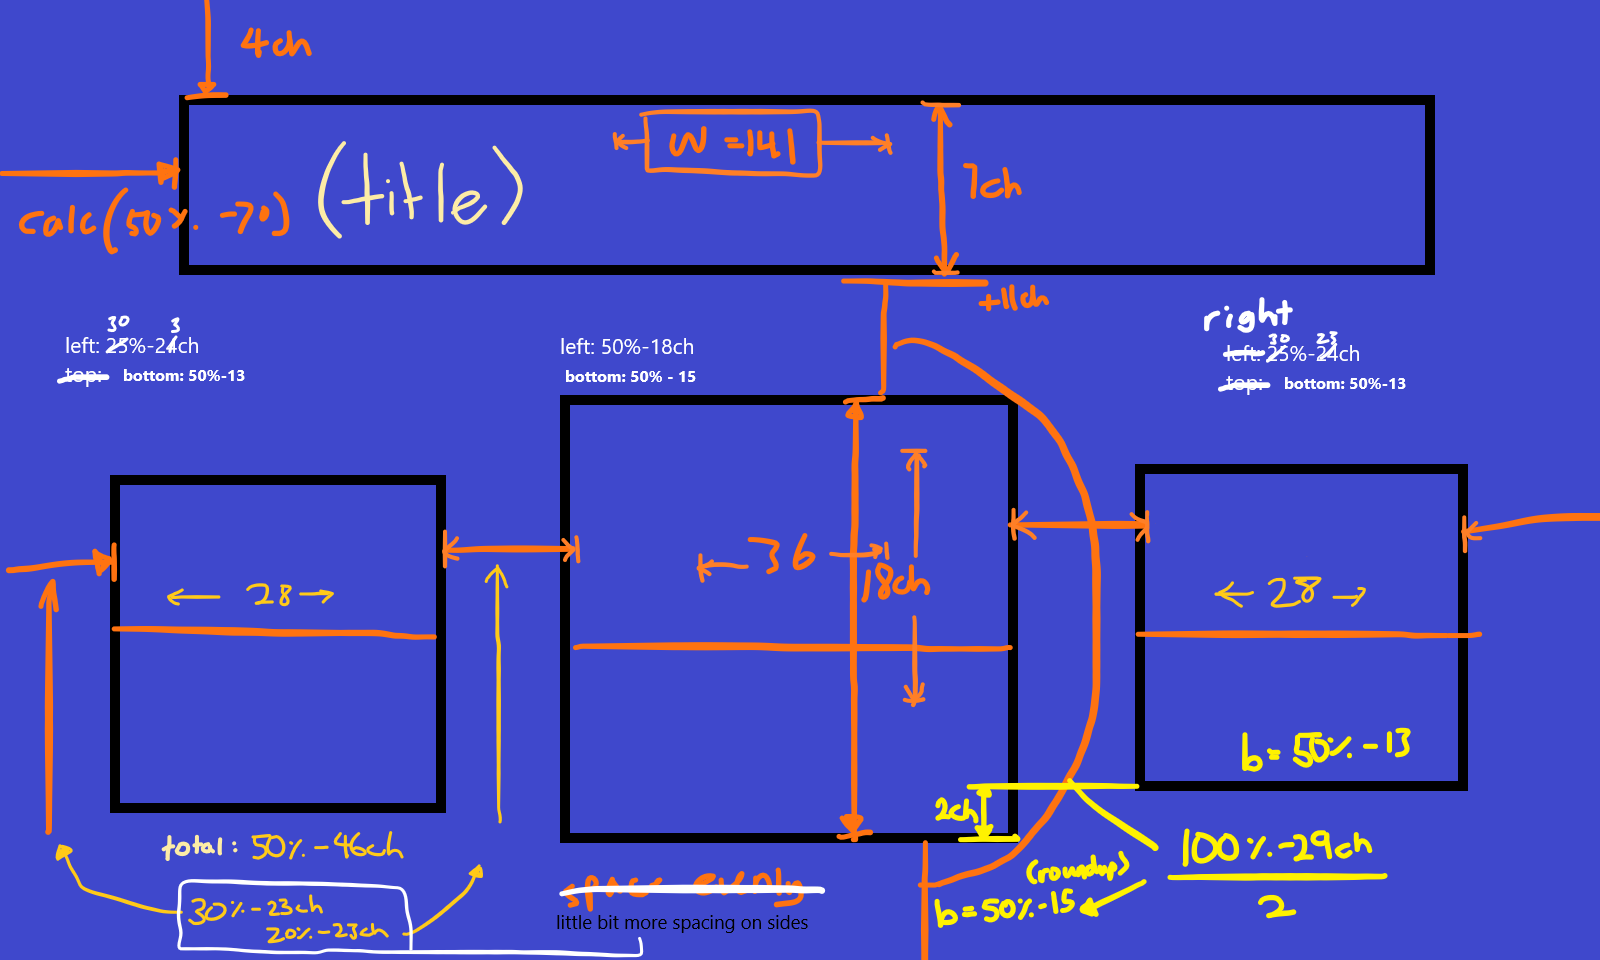 4ch
W = 141
7ch
calc(50% -70)
(title)
+11ch
right
30 3
left: 25%-24ch
top: bottom: 50%-13
left: 50%-18ch
bottom: 50% - 15
30 23
left: 25%-24ch
top: bottom: 50%-13
28
36
18ch
28
b = 50% -13
2ch
total: 50% -46ch
30% -23ch
20% -23ch
space evenly
little bit more spacing on sides
(roundup)
b = 50% -15
100% -29ch
2